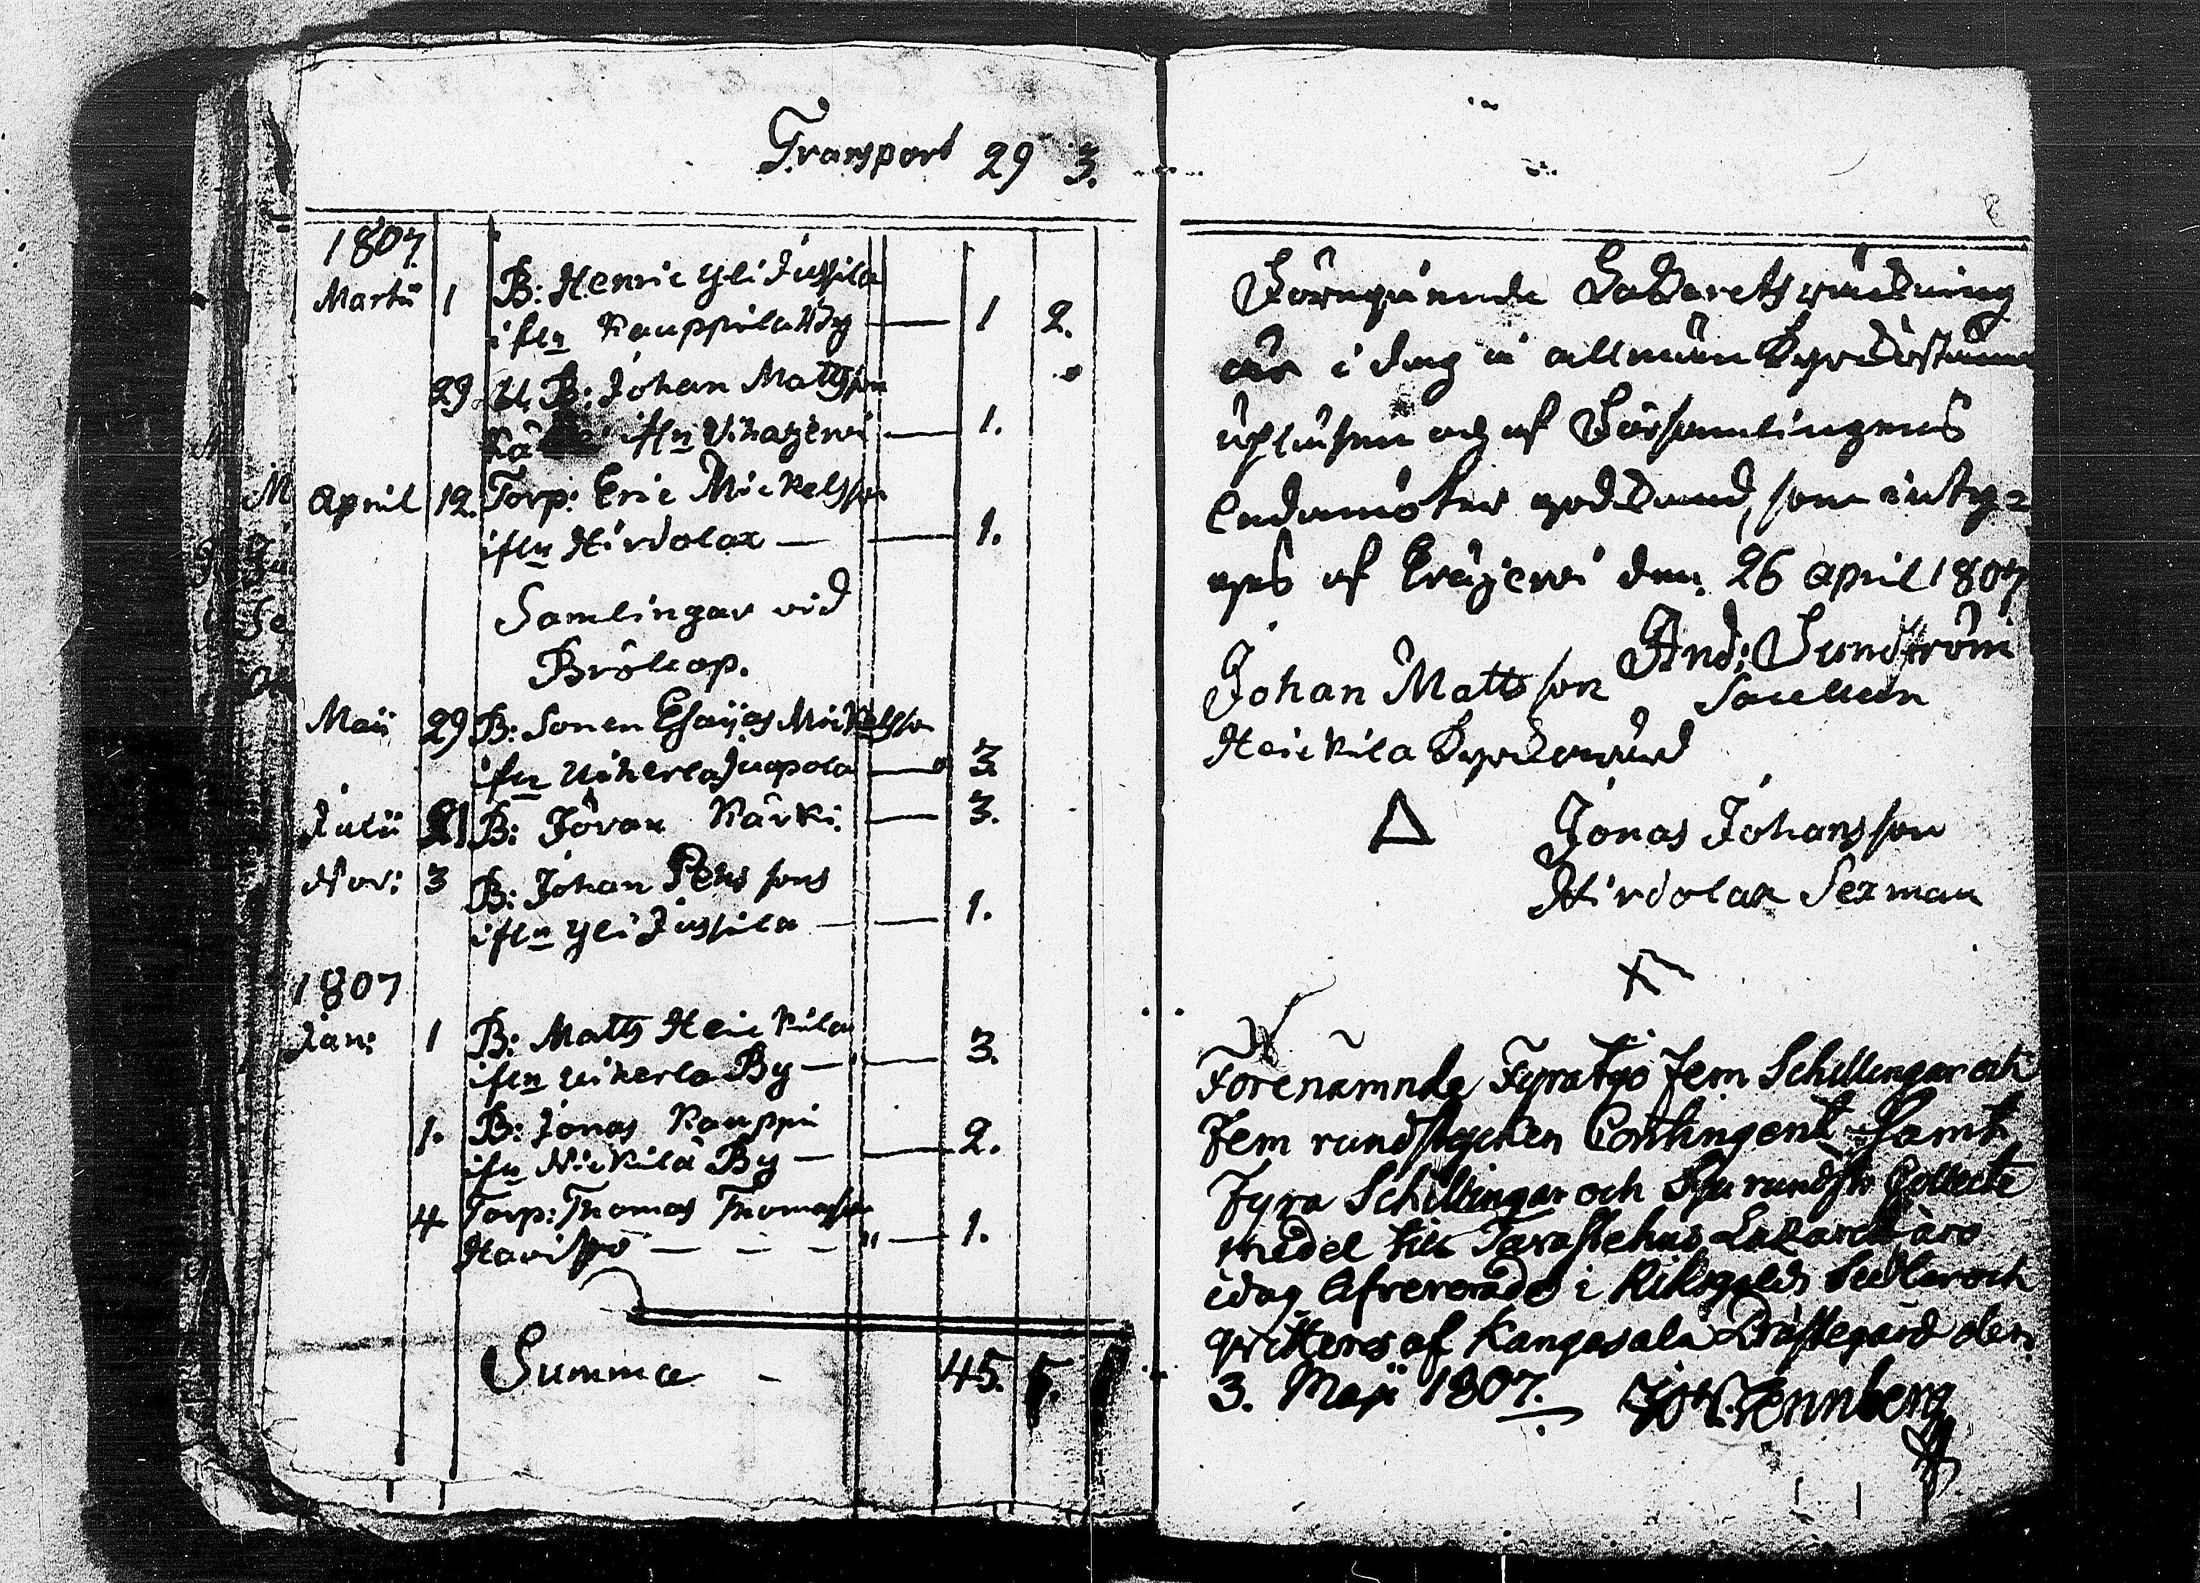 Transport 29 3.
1807.
Martii 1 B: Henric Yli Jussila
ifrn Kauppila By — 1 2.
29. U. B: Johan Mattsson
ifrn Vihajervi — 1.
April 12. Torp: Eric Mickelsson
ifrn Hirdolax — — 1.
Samlingar vid
Bröllop.
Maii 29 B: Sonen Esaijas Mickelsson
ifrn Uiherla Juopola — 3
Julii 21 B: Jöran Kärki. — 3.
Nov: 3 B: Johan Pehrssons
ifrn Yli Jussila — 1.
1807
Jan: 1 B: Matts Heickila
ifrn Uiherla By — — 3.
1. B: Jonas Kauppi
ifrn Nickilä By — — 2.
4 Torp: Thomas Thomasson
Havisto — — — " — 1.
Summa - 45. 5.
Förenämnde Lazarets räkning
är i dag i allmän Kyrkostämma
upläsen och af Församlingens
Ledamöter godkänd, som inty=
gas af Eräjervi den 26 April 1807
And: Sundström
Johan Mattsson Sacellan
Heickila Kyrkovärd
Jonas Johansson
Hirdolax Sexman
Förenämnde Fyratijo fem Schillingar och
fem rundstycken Contingent samt
fyra Schillingar och Sju rundst. Collecte
medel till Tavastehus Lazarett äro
idag lefvererade i Riksgälds Sedlar och
qvitteres af Kangasala Prästegård den
3. Maji 1807.